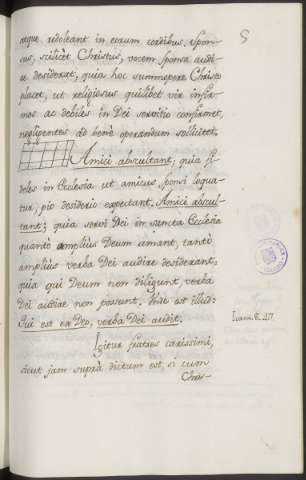 5
atque redoleant in eorum cordibus. Spon-
sus, scilicet Christus, vocem sponsæ audi-
re desiderat, quia hoc summopere Christo
placet, ut religiosus quilibet vir infir-
mos ac debiles in Dei servitio confirmet,
negligentes ad bene operandum sollicitet.
Amici abscultant; quia fi-
deles in Ecclesia ut amicus sponsi loqua-
tur, pio desiderio expectant. Amici abscul-
tant; quia servi Dei in sancta Ecclesia
quantò amplius Deum amant, tantò
amplius verba Dei audire desiderant,
quia qui Deum non diligunt verba
Dei audire non possunt. Hinc est illud:
Qui est ex Deo, verba Dei audit.
Ioann. 8. 47.
Igitur fratres carissimi,
sicut jam suprà dictum est, si cum
Chris-